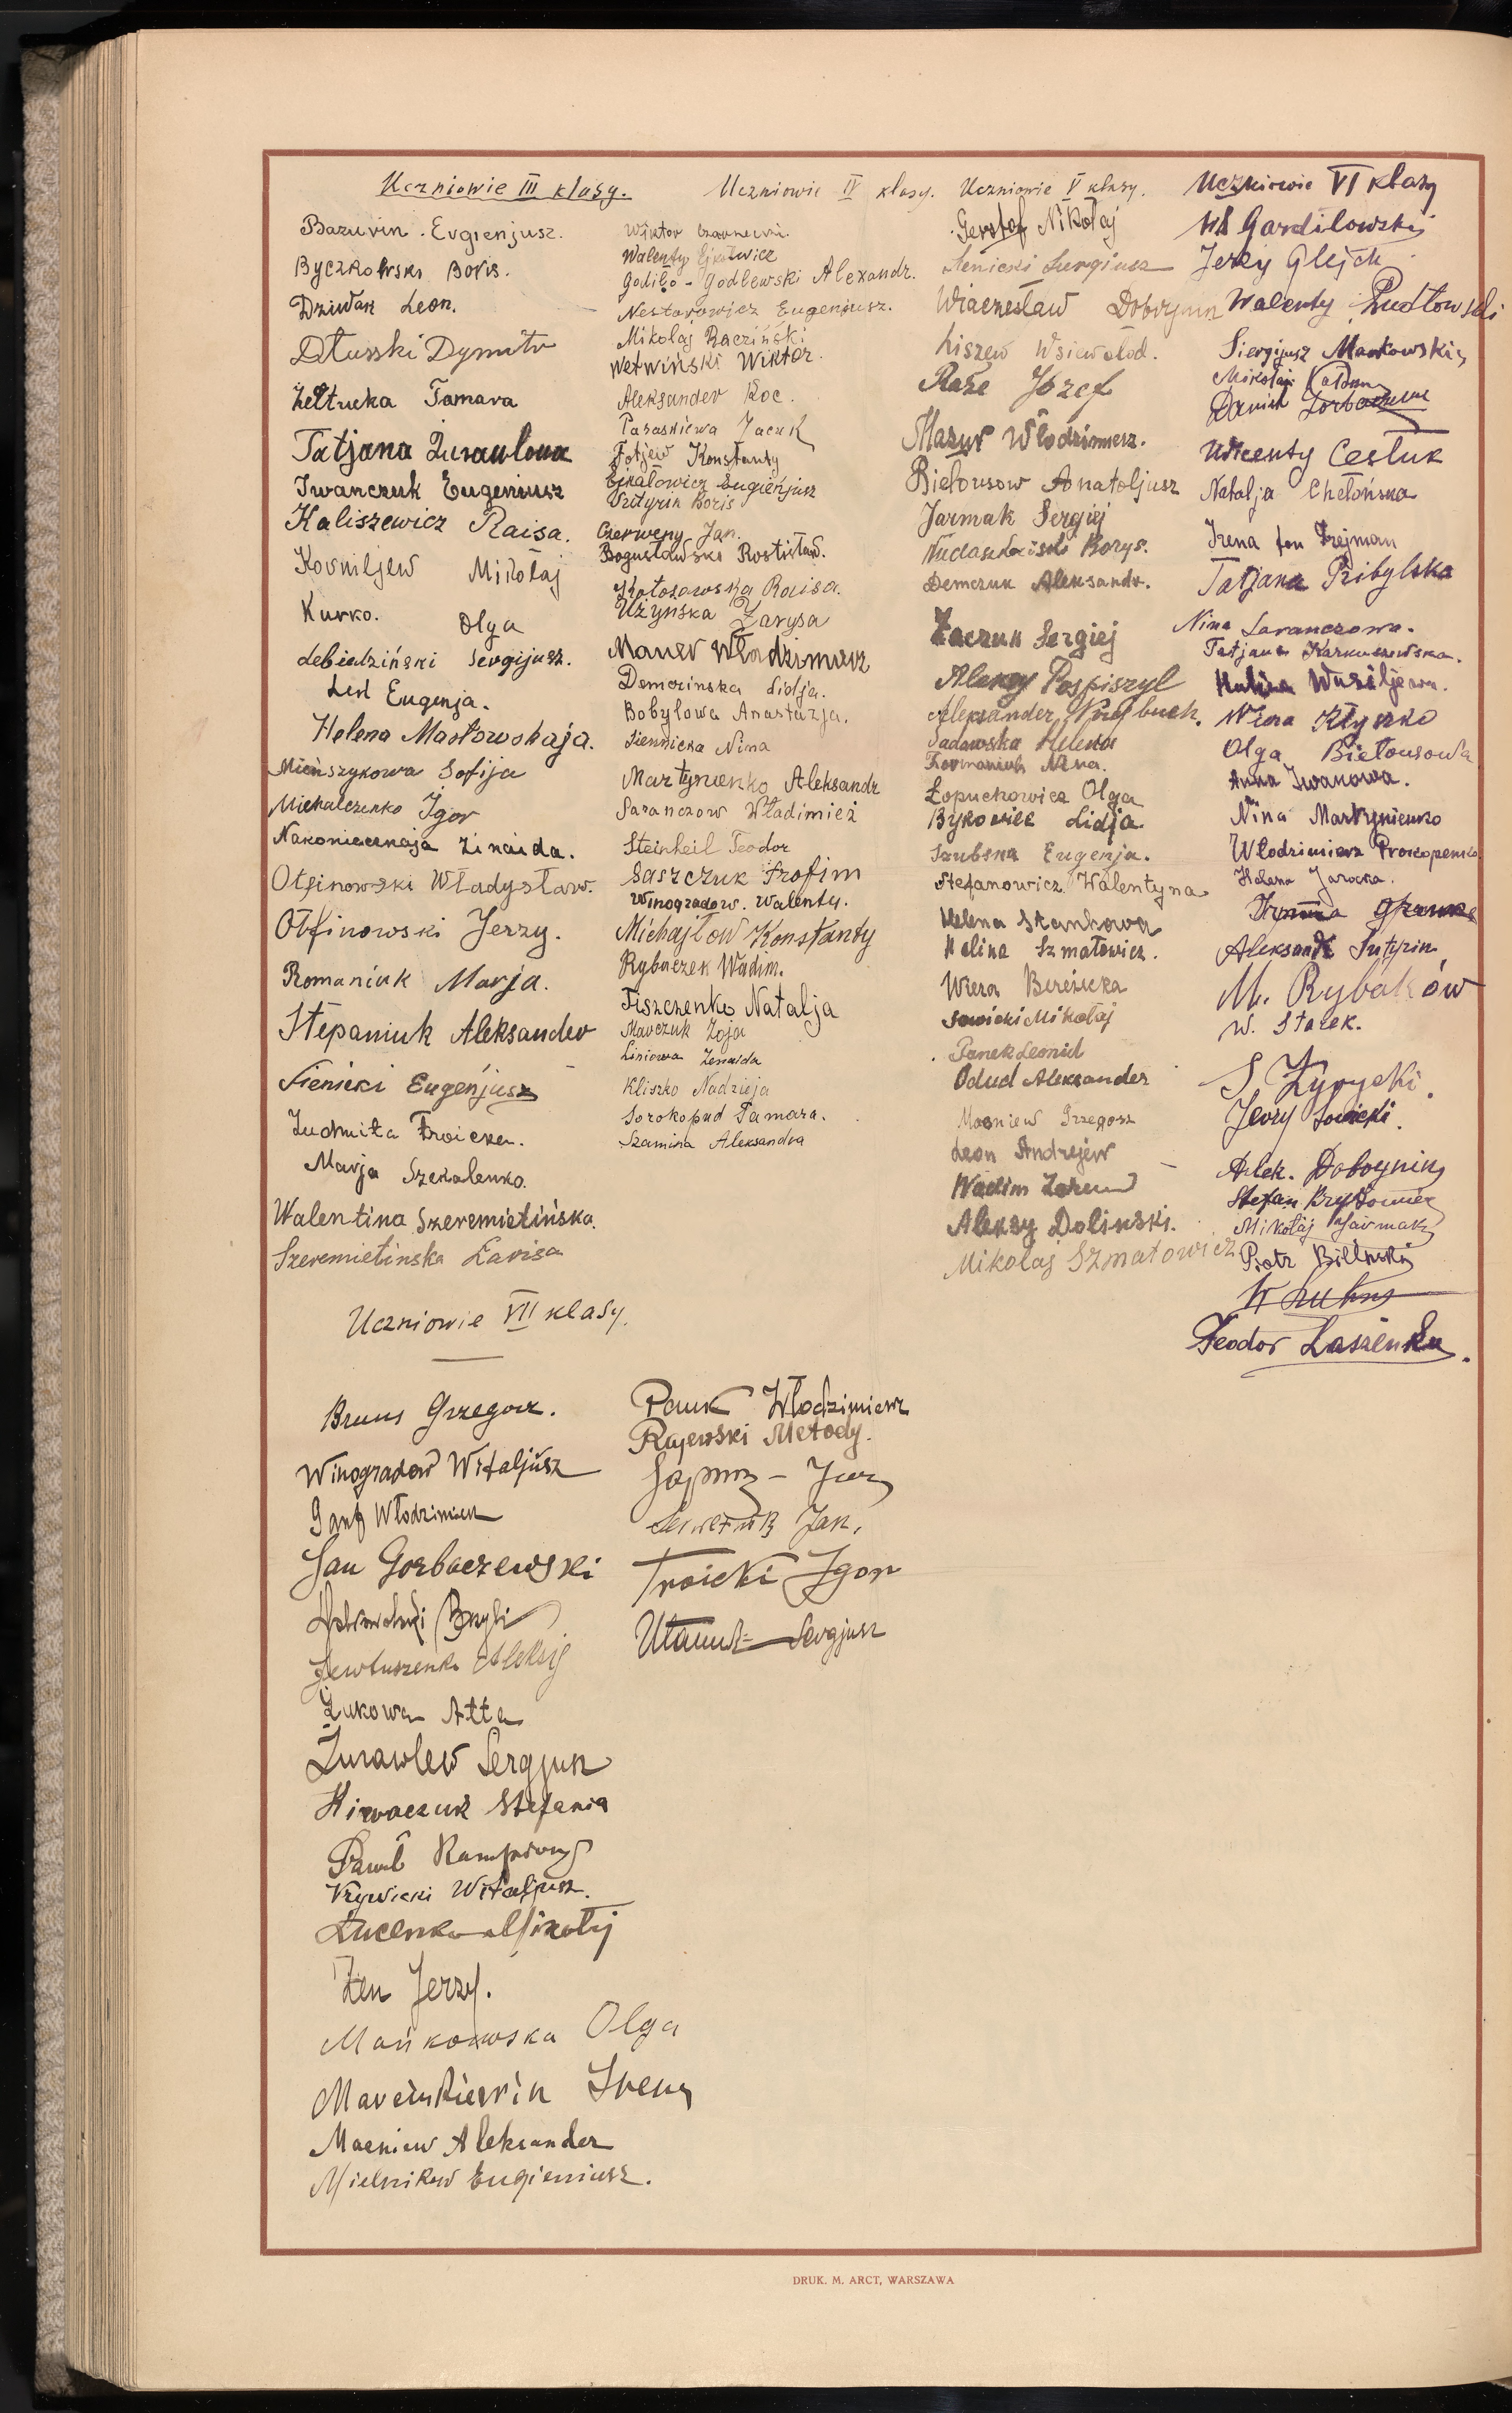 Uczniowie III klasy.
Bazurin Evgienjusz.
Byczkowski Boris.
Dziwak Leon.
Dłusski Dymitr
Żełtucka Tamara
Tatjana Żurawlowa
Iwanczuk Eugeniusz
Kaliszewicz Raisa.
Korniljew Mikołaj
Kurko. Olga
Lebiedziński Sergijusz.
Led Eugenja.
Helena Masłowskaja.
Mieńszykowa Sofija
Michalczenko Igor
Nakoniecznaja Zinaida.
Otfinowski Władysław.
Otfinowski Jerzy.
Romaniuk Marja.
Stepaniuk Aleksander
Sienicki Eugenjusz
Ludmiła Troicka.
Marja Szekalenko.
Walentina Szeremietińska.
Szeremietinska Larisa
Uczniowie IV klasy.
Wiktor Czarnecki.
Walenty Ejkatowicz
Godiło-Godlewski Alexandr.
Nestorowicz Eugenjusz.
Mikołaj Racziński
Wetwiński Wiktor.
Aleksander Koc.
Paraskiewa Jacuk
Fotjew Konstanty
Ejkatowicz Eugienjusz
Boris
Czerweny Jan.
Bogusławski Rostisław.
Kołosowska Raisa.
Użyńska Larysa
Mauer Władzimierz
Demczinska Lidja.
Bobylowa Anastazja.
Siennicka Nina
Martynienko Aleksandr
Saranczow Władimież
Steinheil Teodor
Saszczuk Trofim
Winogradow. Walenty.
Michajłow Konstanty
Rybaczek Wadim.
Tiszczenko Natalja
Marczuk Zoja
Liniowa Zenaida
Kliszko Nadzieja
Sorokopud Tamara.
Szamina Aleksandra
Uczniowie V klasy.
Gerstof Nikołaj
Sienicki Sergiusz
Wiaczesław Dobrynin
Liszew Wsiewołod.
Raże Józef
Mazur Włodzimierz.
Biełousow Anatoljusz
Jarmak Sergiej
Borys.
Demczuk Aleksandr.
Zaczuk Sergiej
Aleksy Pospiszyl
Aleksander
Sadowska Helena
Nina.
Łopuchowicz Olga
Bykowicz Lidja.
Szubska Eugenja.
Stefanowicz Walentyna
Helena Stankowa
Halina Szmatowicz.
Wiera Bereżecka
Sawicki Mikołaj
Panek Leonid
Odud Aleksander
Mosniew Grzegosz
Leon Andrejew
Wadim
Aleksy Dolinski.
Mikołaj Szmatowicz
Uczniowie VI klasy
Wł Gardiłowski
Jerzy Glejch
Walenty Pudłowski
Siergijusz Markowski
Mikołaj
Daniel
Wicenty Cestuk
Natalja Chełońska
Irena fon Krejman
Tatjana Pribylska
Nina Saranczowa.
Tatjana Karkuszewska.
Halina Wasiljewa.
Wiera Kłyszko
Olga Biełousowa
Anna Iwanowa.
Nina Martynienko
Włodzimierz Prokopenko
Helena Jarocka.
Aleksandr Suturin
M. Rybaków
W. Starek.
S. Zyrycki.
Jerzy Sawicki.
Alek. Dobrynin
Stefan Bryłowiec
Mikołaj Jarmak
Piotr Biliński
Teodor Łaszenko.
Uczniowie VII klasy.
Bruns Grzegorz.
Winogradow Witaljusz
Ganf Włodzimierz
Jan Gorbaczewski
Jewtuszenko Aleksij
Żukowa Ałła
Żurawlew Sergjusz
Hirwaczuk Stefania
Paweł
Krywicki Witaljusz.
Łucenko Mikołaj
Len Jerzy.
Mańkowska Olga
Irena
Macniew Aleksander
Mielnikow Eugieniusz.
Pauk Włodzimierz
Rajewski Metody.
Jan.
Troicki Igor
Sergjusz
DRUK. M. ARCT, WARSZAWA